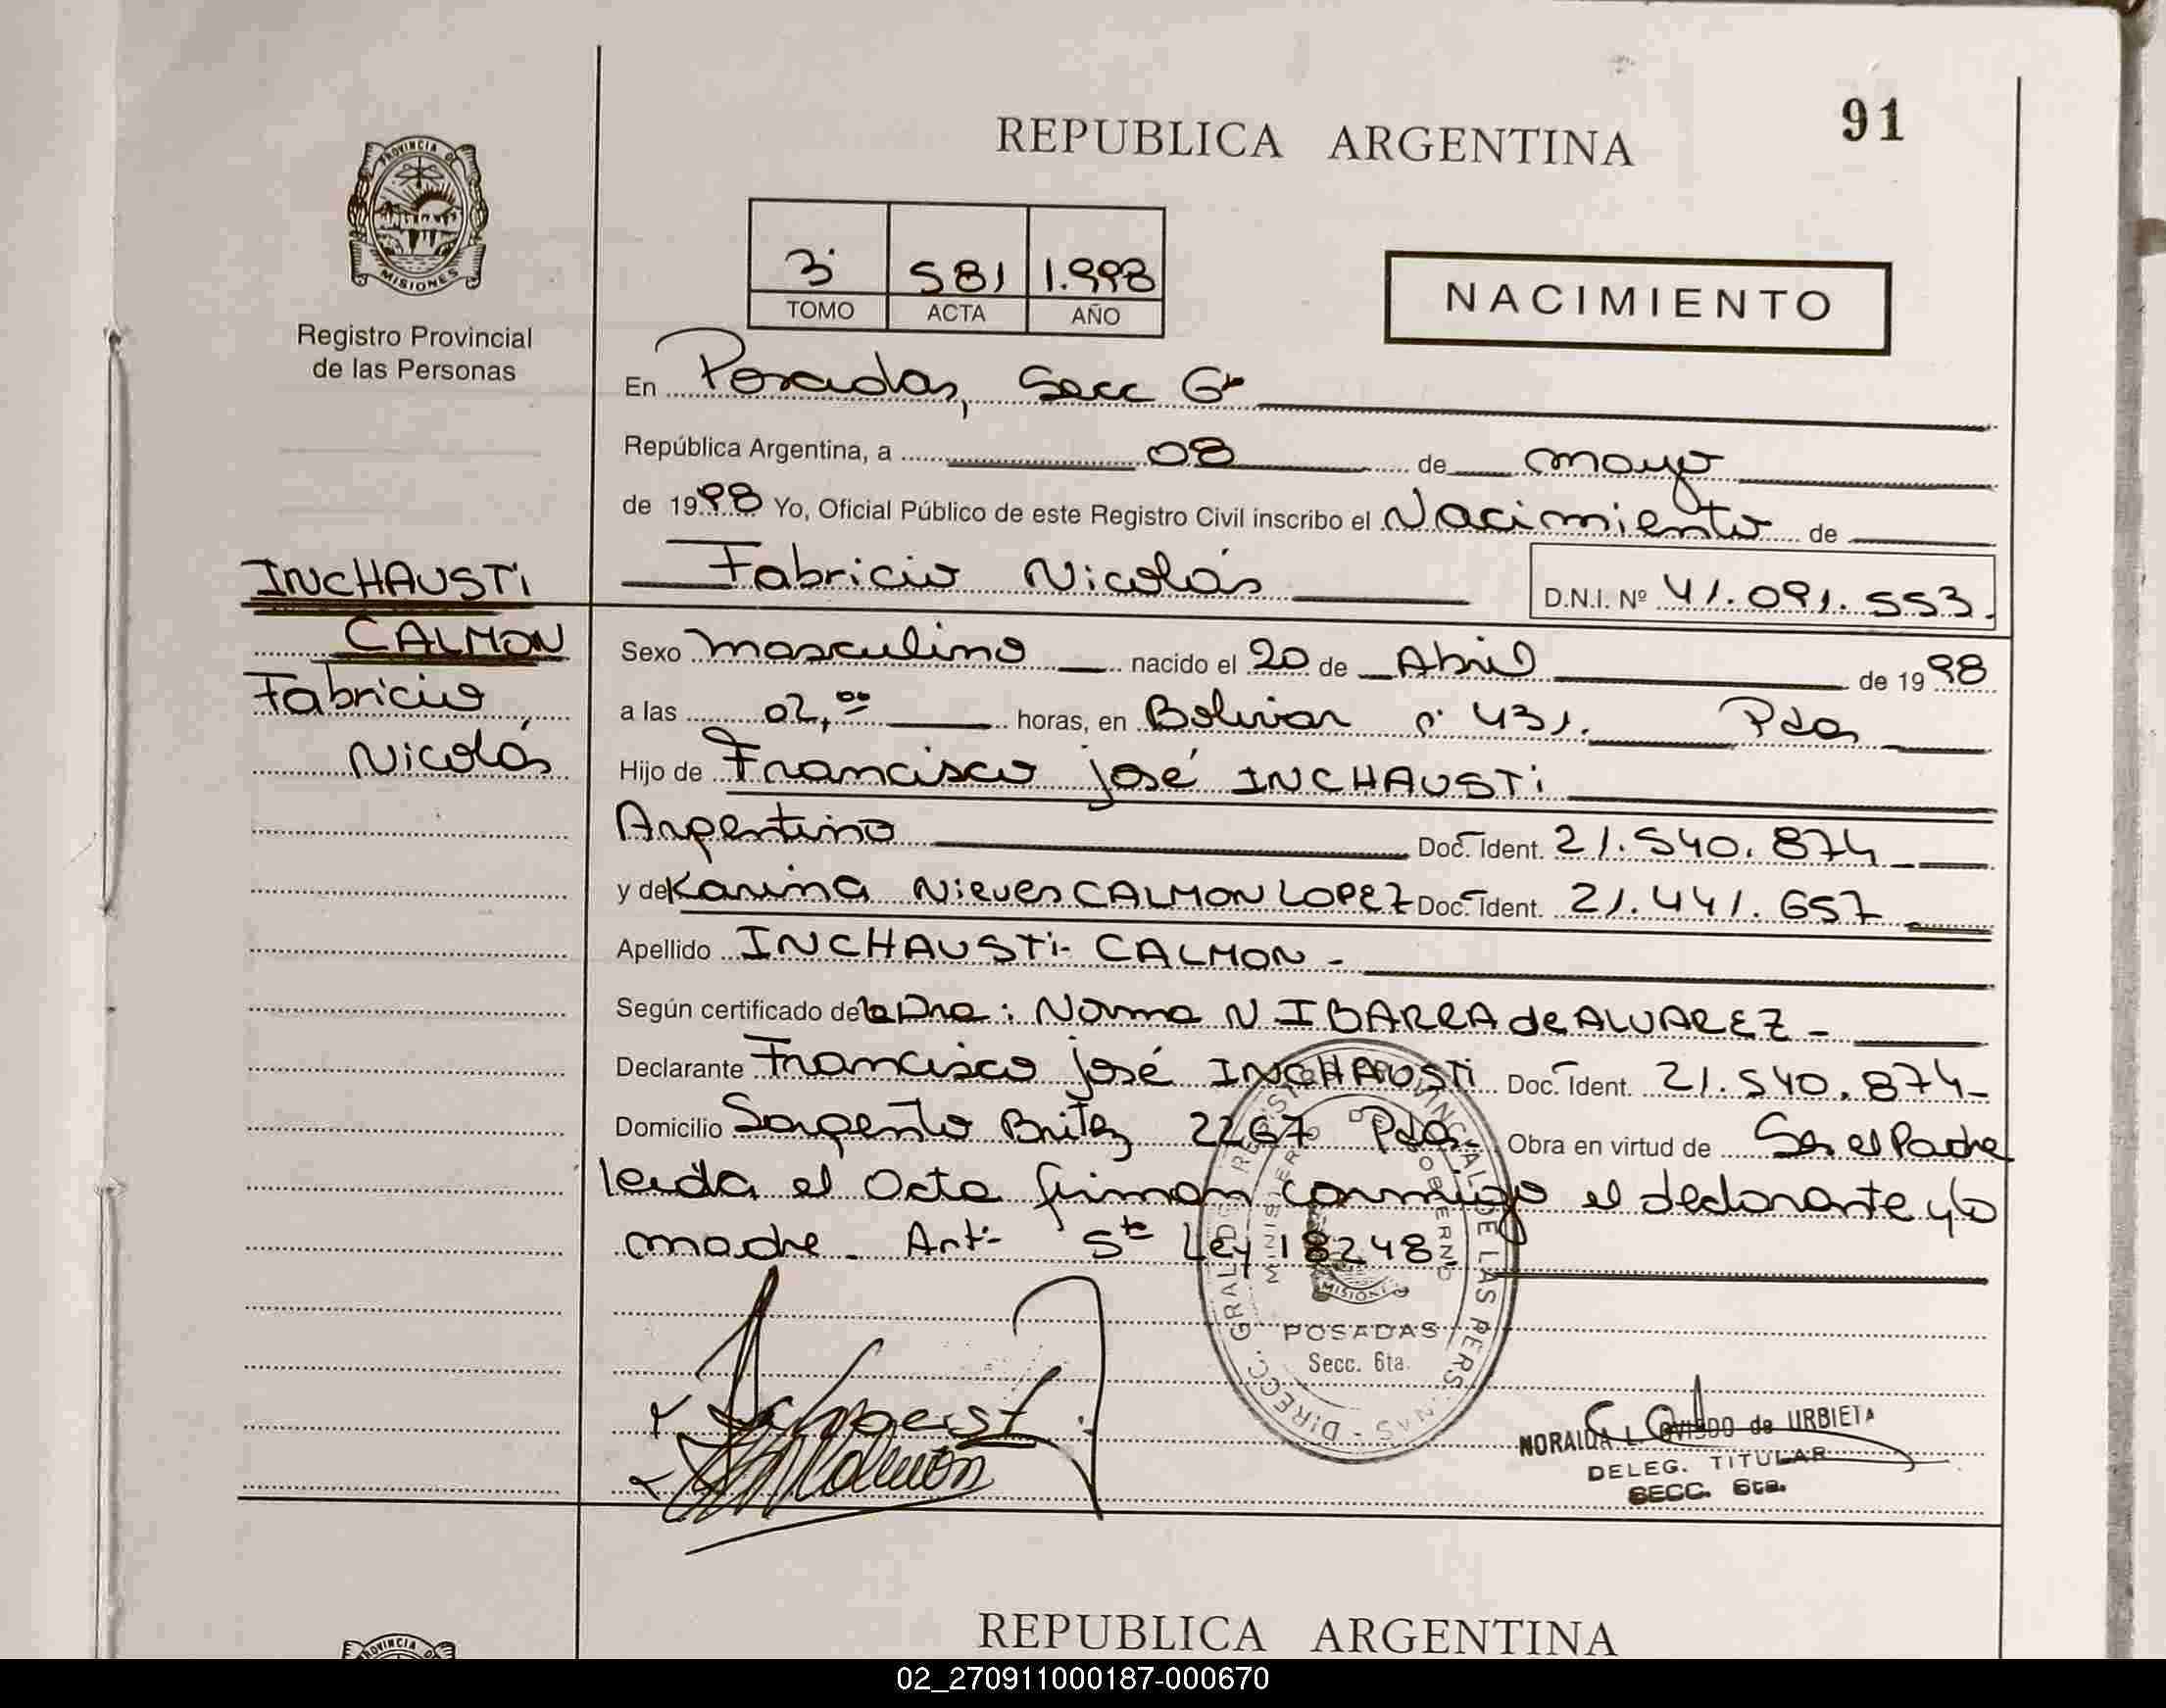 91
REPUBLICA ARGENTINA
PROVINCIA DE
MISIONES
Registro Provincial
de las Personas
3° 581 1.998
TOMO ACTA AÑO
NACIMIENTO
En Posadas, Secc 6ª
República Argentina, a 08 de mayo
de 1998 Yo, Oficial Público de este Registro Civil inscribo el Nacimiento de
Fabricio Nicolás D.N.I. Nº 41.091.553.
INCHAUSTI
CALMON
Fabricio,
Nicolás
Sexo masculino nacido el 20 de Abril de 1998
a las 02,ºº horas, en Bolivar nº 431. Pdas
Hijo de Francisco José INCHAUSTI
Argentino Doc. Ident. 21.540.874
y de Karina Nieves CALMON LOPEZ Doc. Ident. 21.441.657
Apellido INCHAUSTI- CALMON -
Según certificado de la Dra: Norma N. IBARRA de ALVAREZ -
Declarante Francisco José INCHAUSTI Doc. Ident. 21.540.874-
Domicilio Sargento Britez 2267 Pdas. Obra en virtud de Ser el Padre
leida el Acta firman conmigo el declarante y la
madre. Art- 5to Ley 18248.
DIRECC. GRAL. DE REGISTRO PROVINCIAL DE LAS PERSONAS
MINISTERIO DE GOBIERNO
MISIONES
POSADAS
Secc. 6ta.
NORAIDA L. OVIEDO de URBIETA
DELEG. TITULAR
SECC. 6ta.
REPUBLICA ARGENTINA
PROVINCIA
02_270911000187-000670